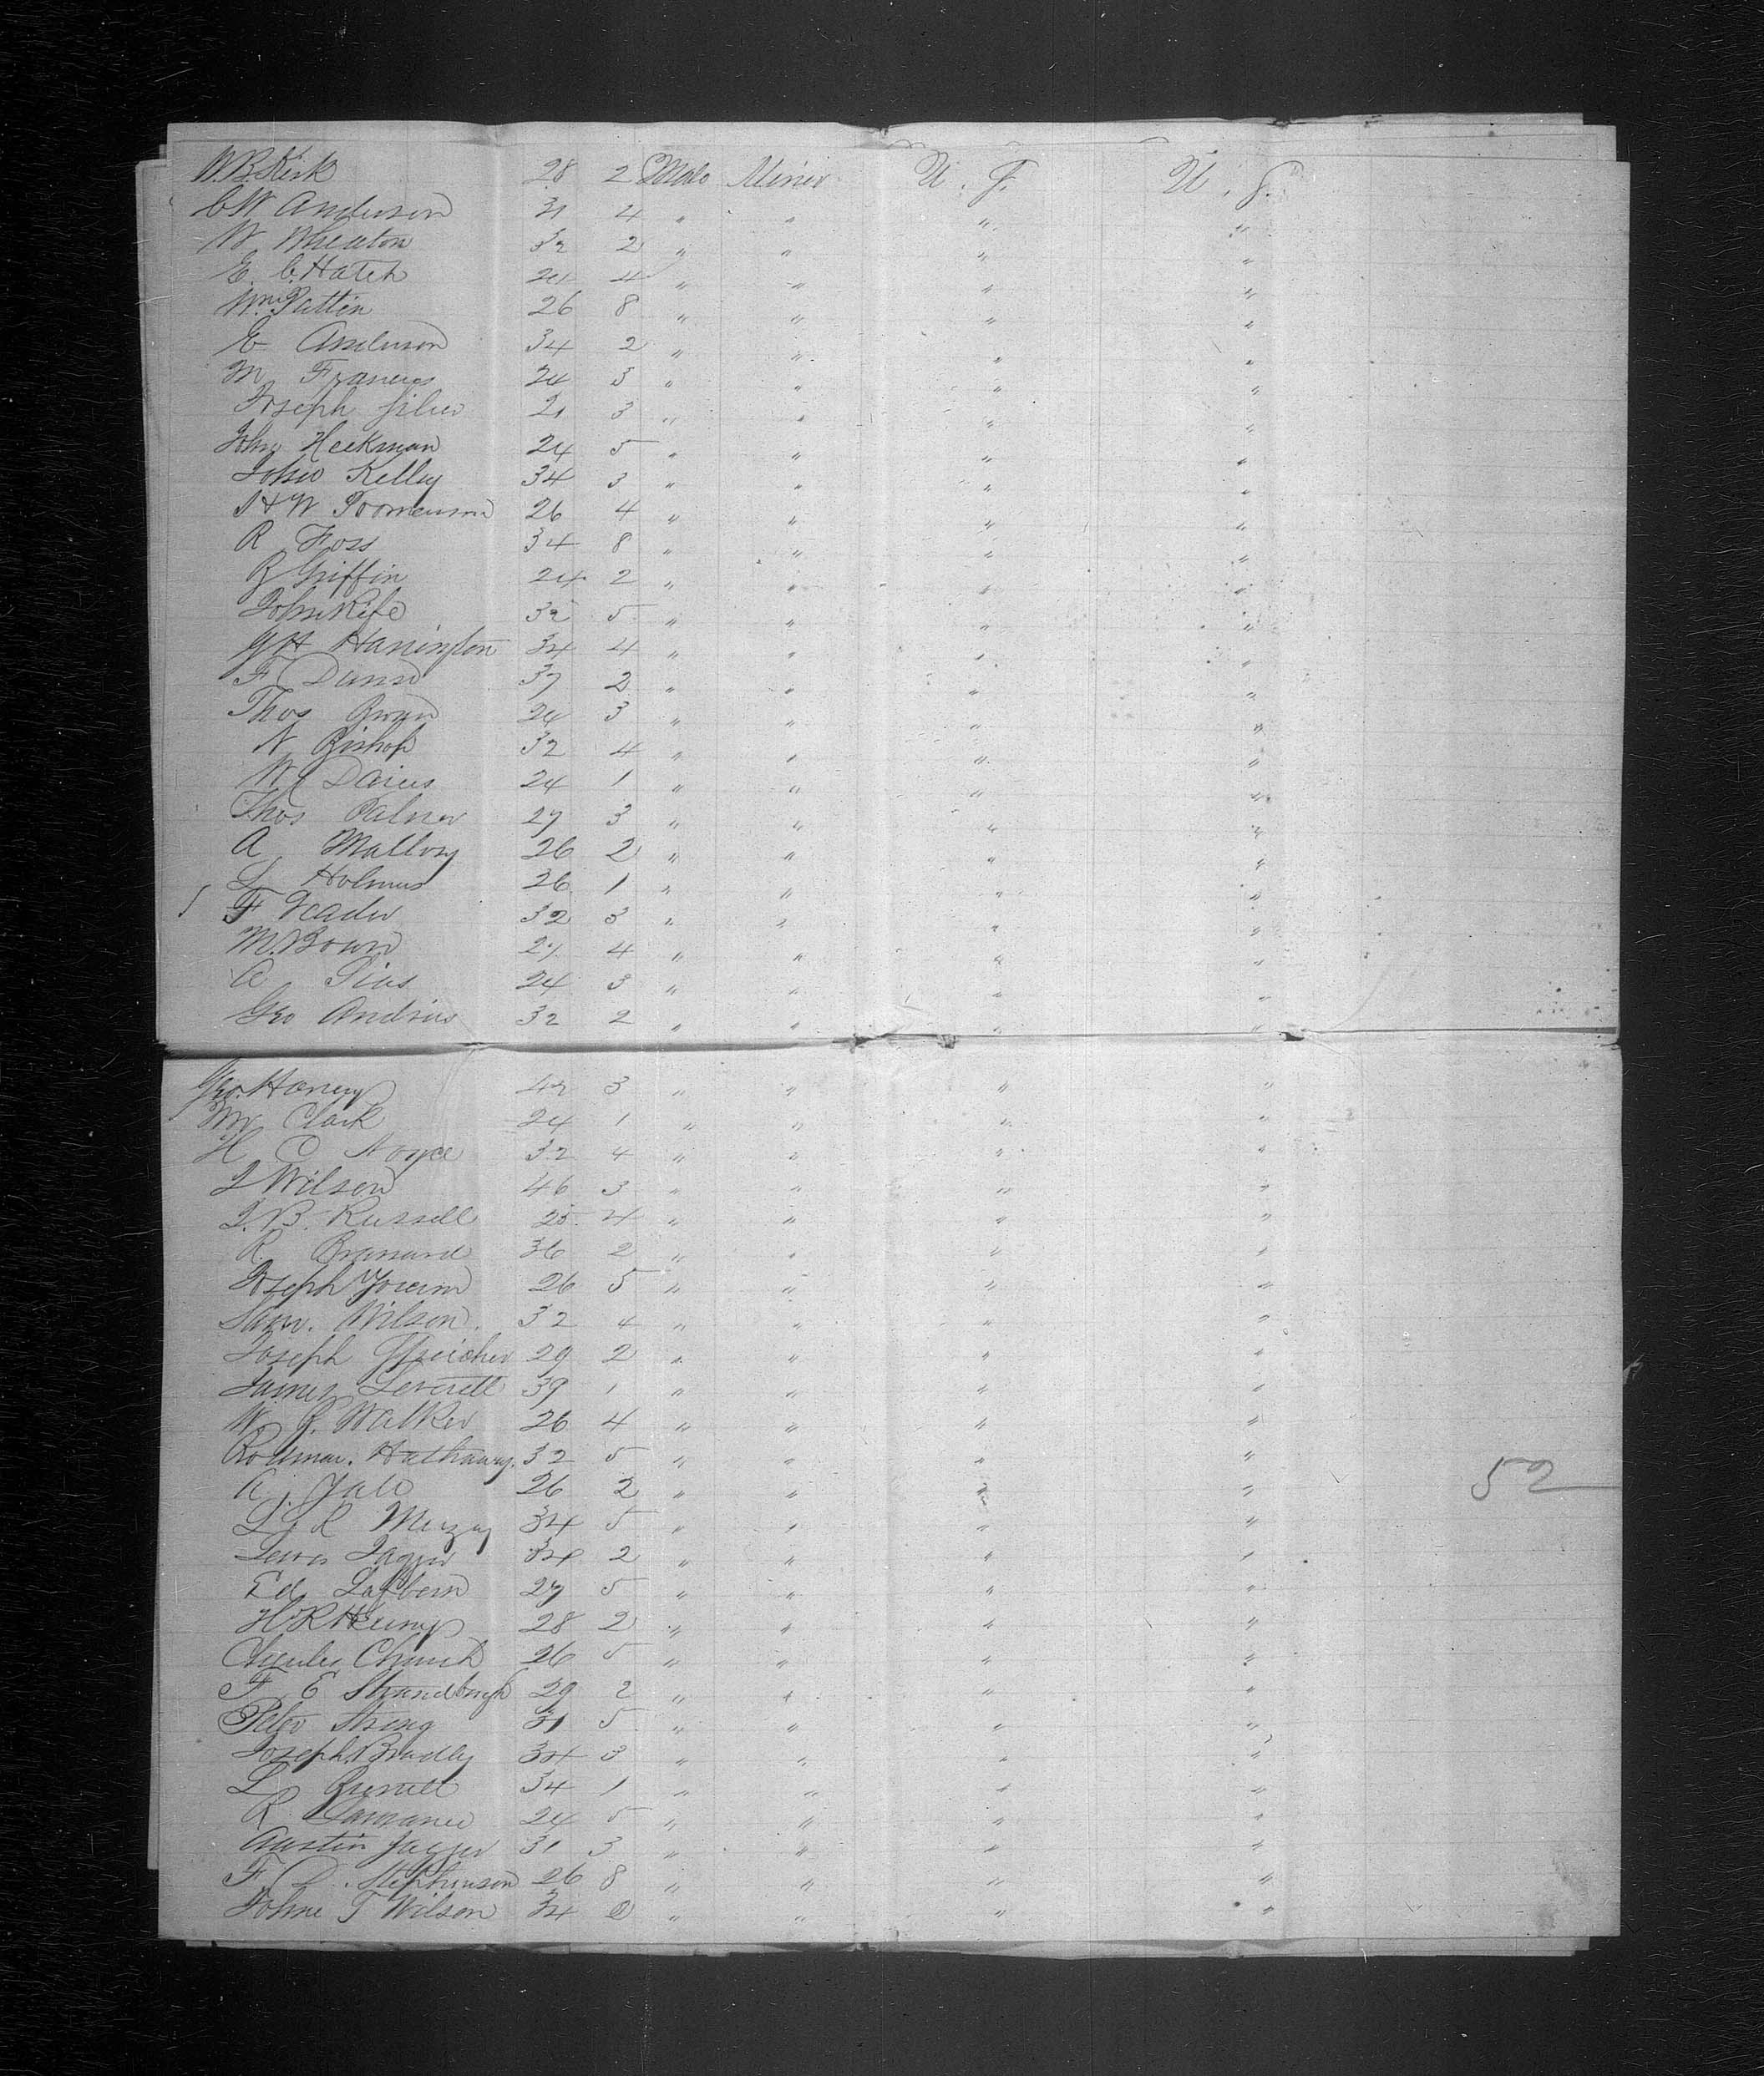 W. B. Kirk 28 2 Male Miner U. S. U. S.
C W Anderson 31 4 " " " "
W. Wheaton 32 2 " " " "
E. C. Hatch 24 4 " " " "
Wm. Pattin 26 8 " " " "
E Anderson 34 2 " " " "
M Francis 24 3 " " " "
Joseph Silver 21 3 " " " "
John Heckman 24 5 " " " "
John Kelley 34 3 " " " "
26 4 " " " "
R Foss 34 8 " " " "
R Griffin 24 2 " " " "
John Rife 32 5 " " " "
G H Hanington 34 4 " " " "
F 37 2 " " " "
Thos 24 3 " " " "
N Bishop 32 4 " " " "
W J Daius 24 1 " " " "
Thos Palmer 27 3 " " " "
A Mallory 26 2 " " " "
L Holmes 26 1 " " " "
F 32 3 " " " "
M. Bown 27 4 " " " "
A 24 3 " " " "
Geo Andrius 32 2 " " " "
Geo. Haney 42 3 " " " "
Mr Clark 24 1 " " " "
H C Noyce 32 4 " " " "
J Wilson 46 3 " " " "
J. B. Russell 25 4 " " " "
R. 36 2 " " " "
Joseph 26 5 " " " "
Sam. Wilson. 32 4 " " " "
Joseph 29 2 " " " "
James Leverett 39 1 " " " "
W. J. Walker 26 4 " " " "
Hathaway. 32 5 " " " "
A. 26 2 " " " " 52
L. R 34 5 " " " "
Lewis 34 2 " " " "
Ed 27 5 " " " "
H R 28 2 " " " "
Charles Church 26 5 " " " "
F E Strandburgh 29 2 " " " "
Peter String 31 5 " " " "
Joseph Bradley 34 3 " " " "
L 34 1 " " " "
R 24 5 " " " "
Austin 31 3 " " " "
F. D. Stephenson 26 8 " " " "
Johne T Wilson 34 2 " " " "